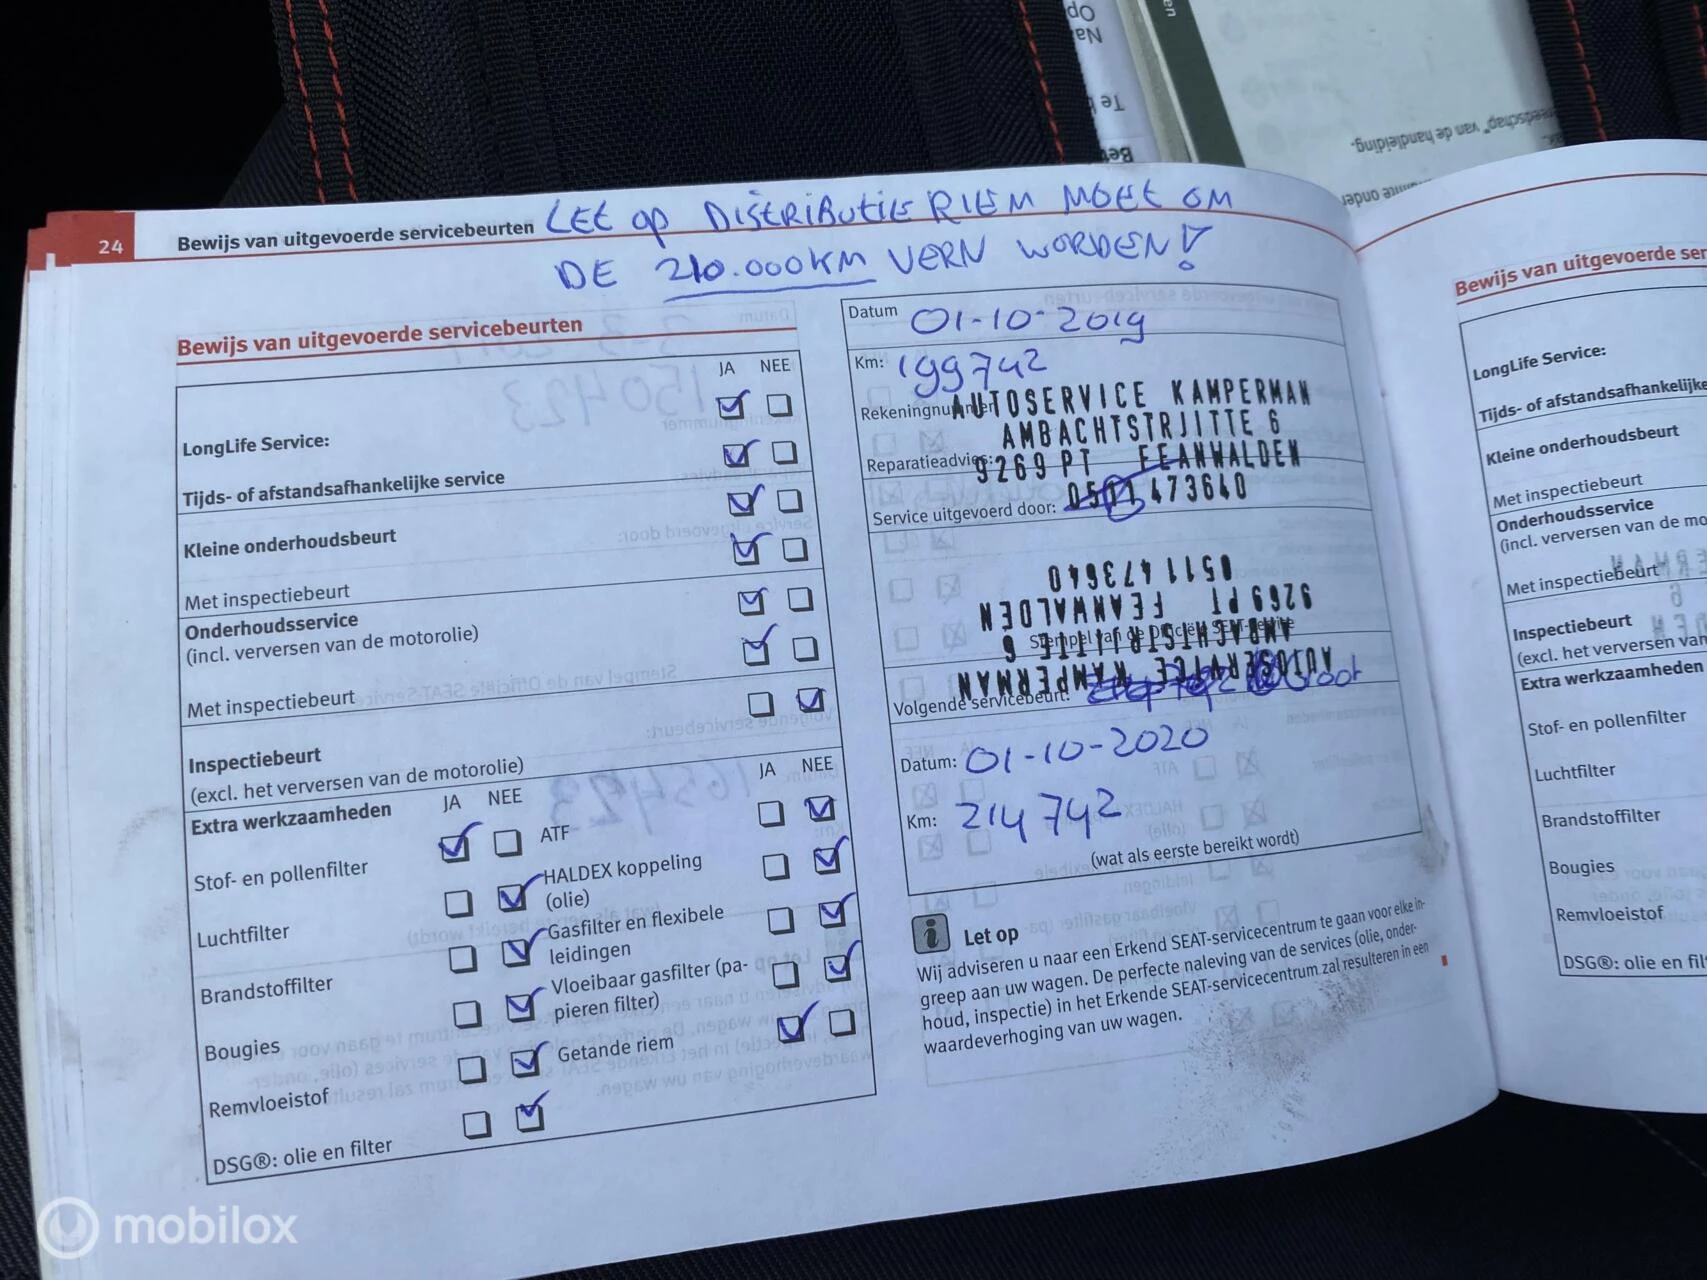 Op
Na
Te b
Be
en
eedschap" van de handleiding.
24
Bewijs van uitgevoerde servicebeurten
LET OP DISTRIBUTIE RIEM MOET OM
DE 210.000KM VERN WORDEN!
Bewijs van uitgevoerde servicebeurten
JA NEE
LongLife Service:
Tijds- of afstandsafhankelijke service
Kleine onderhoudsbeurt
Met inspectiebeurt
Onderhoudsservice
(incl. verversen van de motorolie)
Met inspectiebeurt
Inspectiebeurt
(excl. het verversen van de motorolie)
Extra werkzaamheden JA NEE
JA NEE
Stof- en pollenfilter
Luchtfilter
Brandstoffilter
Bougies
Remvloeistof
DSG®: olie en filter
ATF
HALDEX koppeling
(olie)
Gasfilter en flexibele
leidingen
Vloeibaar gasfilter (pa-
pieren filter)
Getande riem
Datum 01-10-2019
Km: 199742
Rekeningnummer
AUTOSERVICE KAMPERMAN
AMBACHTSTRJITTE 6
Reparatieadvies:
9269 PT FEANWALDEN
Service uitgevoerd door: 0511 473640
0511 473640
9269 PT FEANWALDEN
Stempel van de Officiële SEAT-Service
AMBACHTSTRJITTE 6
AUTOSERVICE KAMPERMAN
Volgende servicebeurt:
Datum: 01-10-2020
Km: 214742
(wat als eerste bereikt wordt)
i Let op
Wij adviseren u naar een Erkend SEAT-servicecentrum te gaan voor elke in-
greep aan uw wagen. De perfecte naleving van de services (olie, onder-
houd, inspectie) in het Erkende SEAT-servicecentrum zal resulteren in een
waardeverhoging van uw wagen.
Bewijs van uitgevoerde ser
LongLife Service:
Tijds- of afstandsafhankelijke
Kleine onderhoudsbeurt
Met inspectiebeurt
Onderhoudsservice
(incl. verversen van de mo
Met inspectiebeurt
Inspectiebeurt
(excl. het verversen van
Extra werkzaamheden
Stof- en pollenfilter
Luchtfilter
Brandstoffilter
Bougies
Remvloeistof
DSG®: olie en fil
mobilox